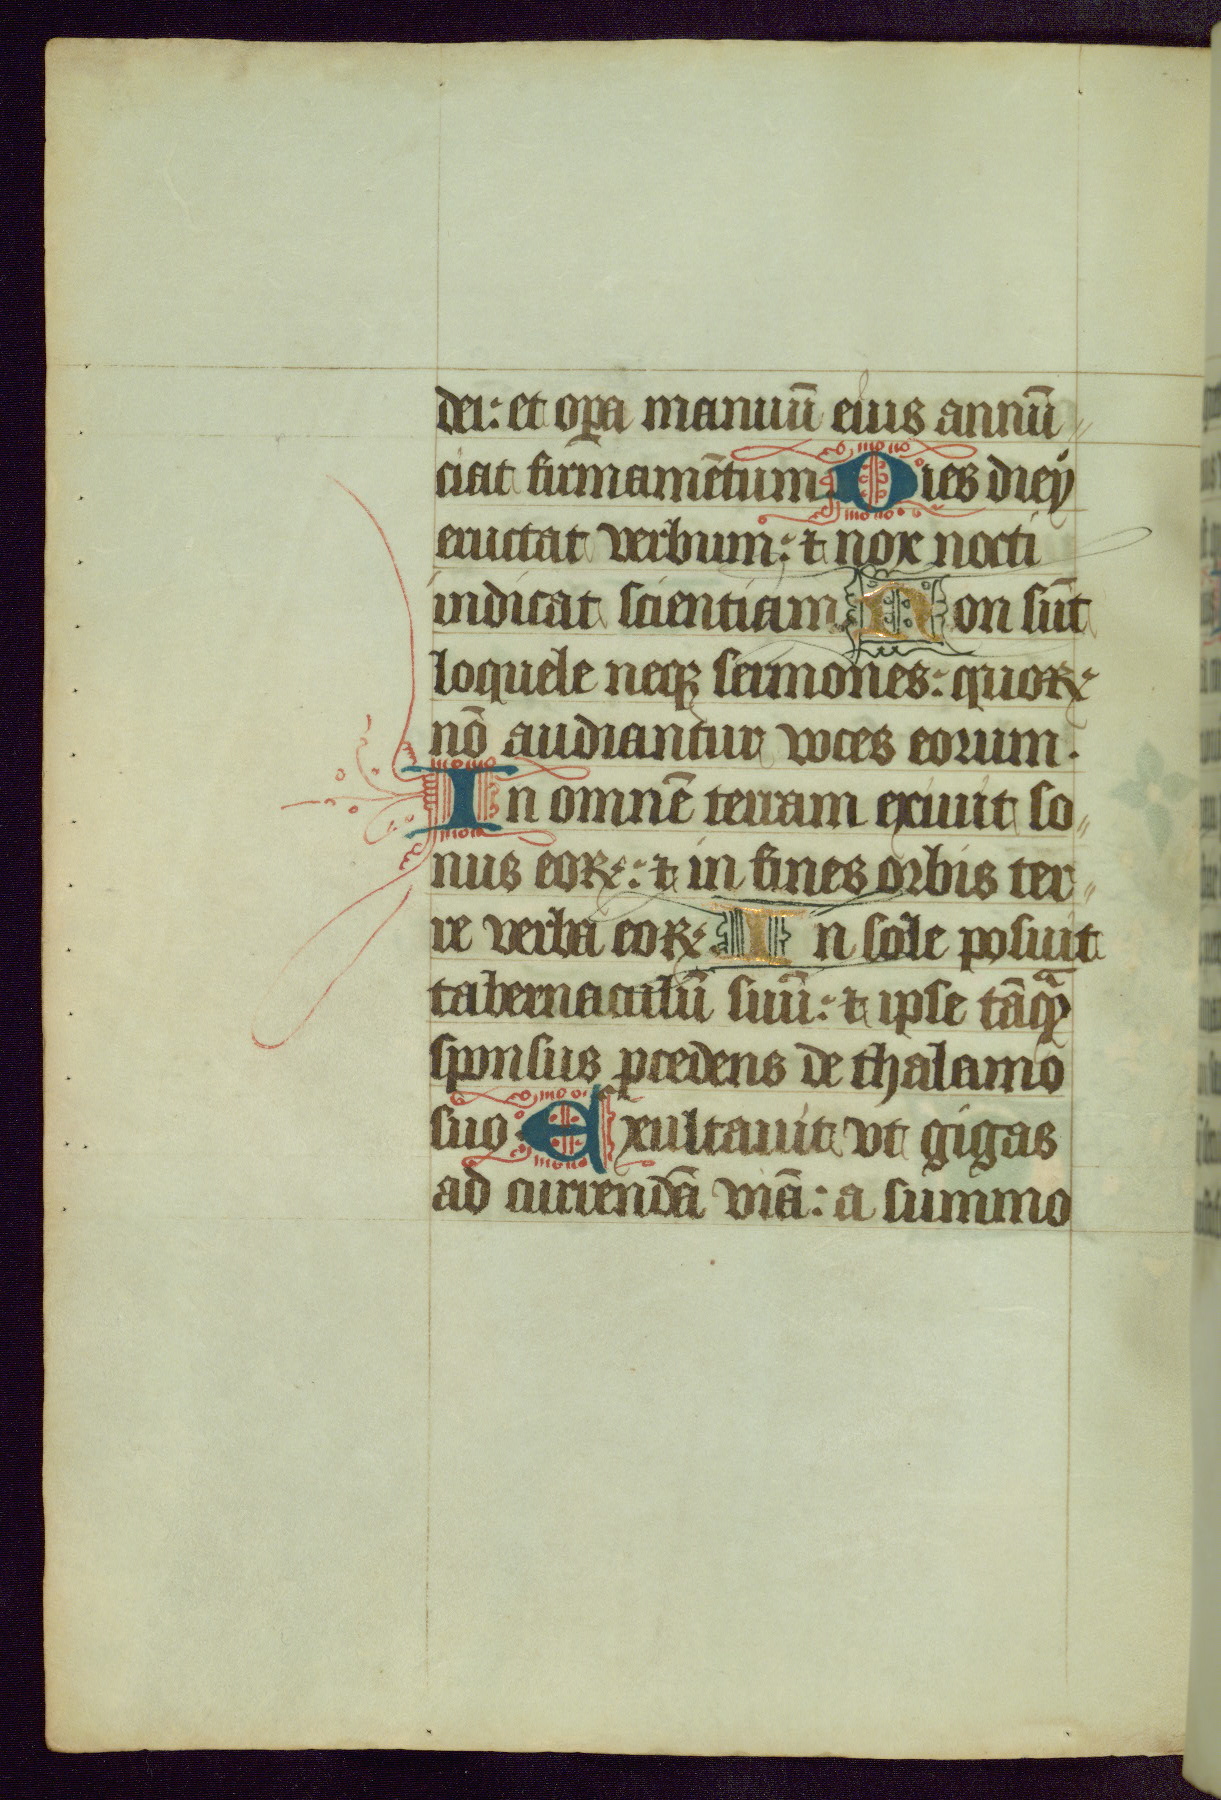 dei: et op̲a manuū eius annū
ciat firmamētum. Dies diei
eructat verbum: ⁊ nox nocti
indicat scientiam. Non sūt
loquele neqꝫ sermones: quoꝝ
nō audiantur voces eorum.
In omnē terram exiuit so
nus eoꝝ: ⁊ in fines orbis ter
re verba eoꝝ. In sole posuit
tabernaculū suū: ⁊ ipse tāqᷓ
sponsus ꝓcedens de thalamo
suo. Exultauit vt gigas
ad currendā viā: a summo